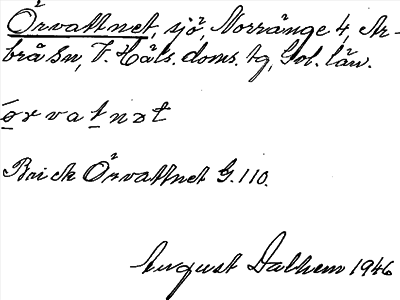 Örvattnet, sjö, Norränge 4, Ar-
brå sn, V. Häls. doms. tg, Gbl. län.
ørvatnət
Brick Örvattnet G. 110.
August Dalhem 1946